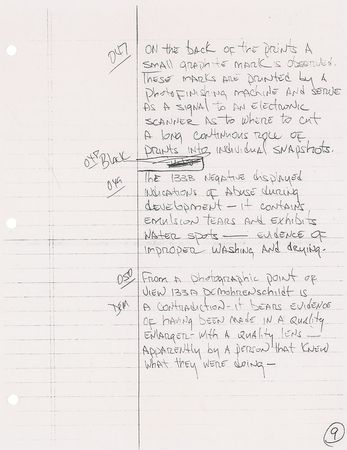 047 ON THE BACK OF THE PRINTS A
SMALL GRAPHITE MARK IS OBSERVED.
THESE MARKS ARE PRINTED BY A
PHOTOFINISHING MACHINE AND SERVE
AS A SIGNAL TO AN ELECTRONIC
SCANNER AS TO WHERE TO CUT
A LONG CONTINUOUS ROLL OF
PRINTS INTO INDIVIDUAL SNAPSHOTS.
048 Blank
049 THE 133B NEGATIVE DISPLAYED
INDICATIONS OF ABUSE DURING
DEVELOPMENT - IT CONTAINS
EMULSION TEARS AND EXHIBITS
WATER SPOTS — EVIDENCE OF
IMPROPER WASHING AND DRYING.
050 FROM A PHOTOGRAPHIC POINT OF
VIEW 133A DEMOHRENSCHILDT IS
DEM A CONTRADICTION - IT BEARS EVIDENCE
OF HAVING BEEN MADE IN A QUALITY
ENLARGER - WITH A QUALITY LENS —
APPARENTLY BY A PERSON THAT KNEW
WHAT THEY WERE DOING —
9